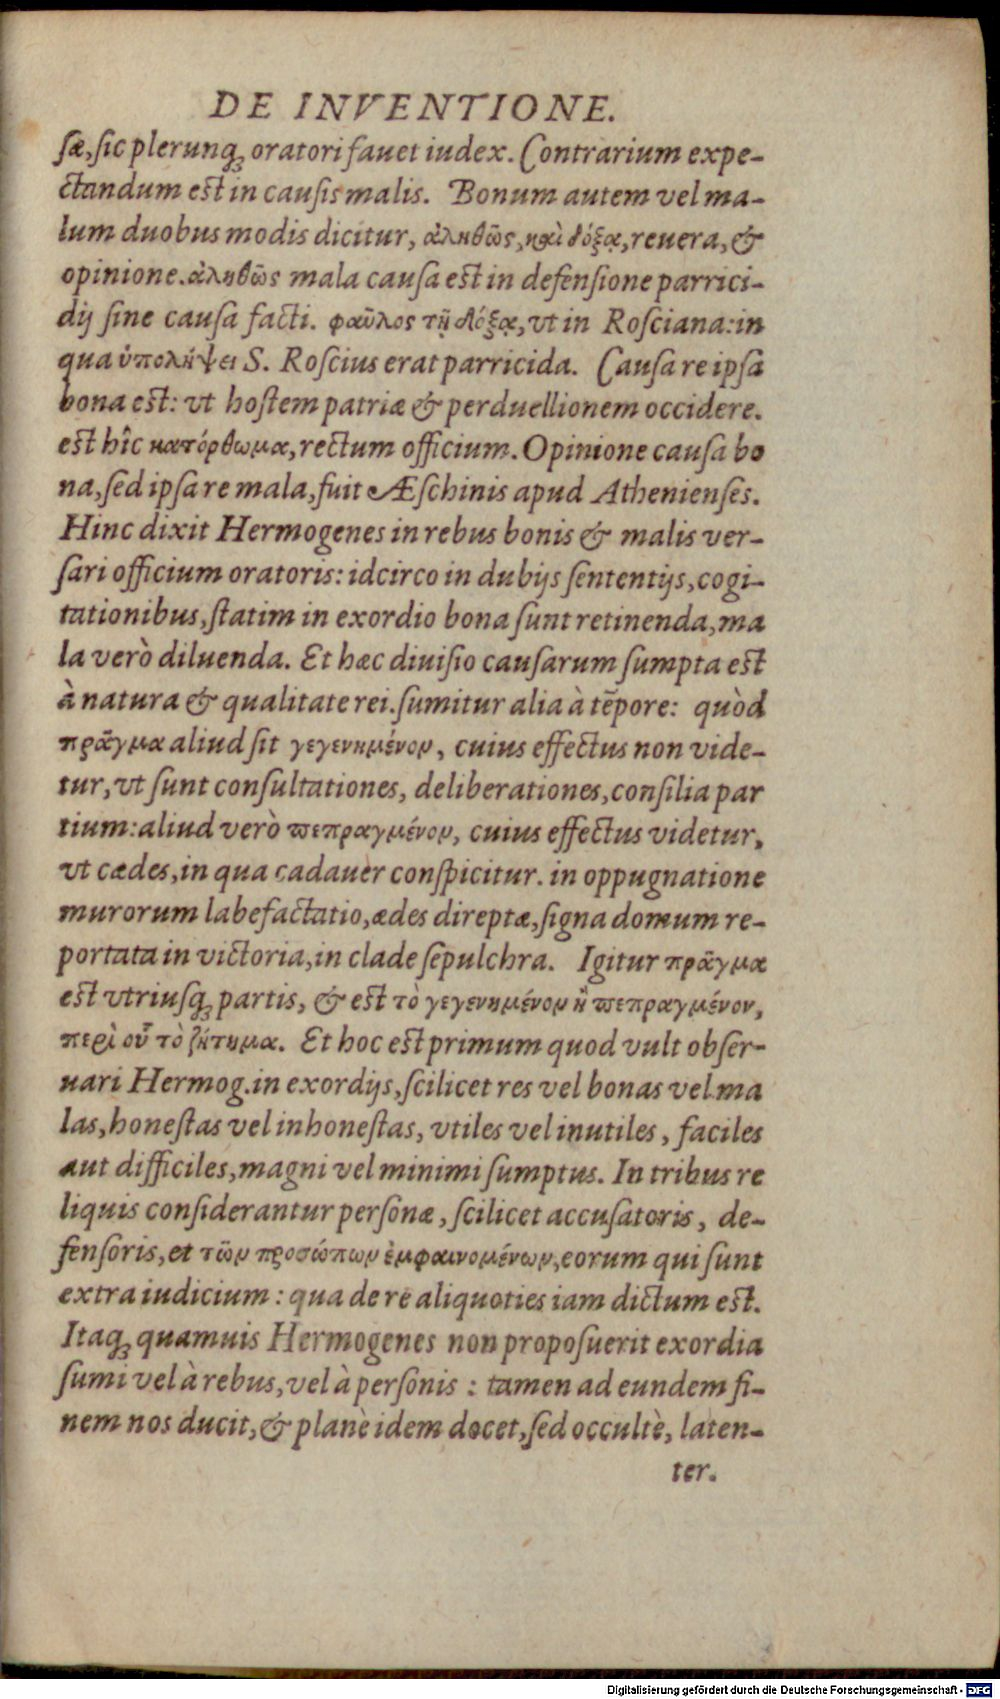 DE INVENTIONE.
sæ, sic plerunq; oratori fauet iudex. Contrarium expe-
ctandum est in causis malis. Bonum autem vel ma-
lum duobus modis dicitur, ἀληθῶς, καὶ δόξᾳ, reuera, &
opinione. ἀληθῶς mala causa est in defensione parrici-
dij sine causa facti. φαῦλος τῇ δόξᾳ, vt in Rosciana: in
qua ὑπολήψει S. Roscius erat parricida. Causa re ipsa
bona est: vt hostem patriæ & perduellionem occidere.
est hîc κατόρθωμα, rectum officium. Opinione causa bo
na, sed ipsa re mala, fuit Æschinis apud Athenienses.
Hinc dixit Hermogenes in rebus bonis & malis ver-
sari officium oratoris: idcirco in dubijs sententijs, cogi-
tationibus, statim in exordio bona sunt retinenda, ma
la verò diluenda. Et hæc diuisio causarum sumpta est
à natura & qualitate rei. sumitur alia à tẽpore: quòd
πρᾶγμα aliud sit γεγενημένον, cuius effectus non vide-
tur, vt sunt consultationes, deliberationes, consilia par
tium: aliud verò πεπραγμένον, cuius effectus videtur,
vt cædes, in qua cadauer conspicitur. in oppugnatione
murorum labefactatio, ædes direptæ, signa domum re-
portata in victoria, in clade sepulchra. Igitur πρᾶγμα
est vtriusq; partis, & est τὸ γεγενημένον ἢ πεπραγμένον,
περὶ οὗ τὸ ζήτημα. Et hoc est primum quod vult obser-
uari Hermog. in exordijs, scilicet res vel bonas vel ma
las, honestas vel inhonestas, vtiles vel inutiles, faciles
aut difficiles, magni vel minimi sumptus. In tribus re
liquis considerantur personæ, scilicet accusatoris, de-
fensoris, et τῶν προσώπων ἐμφαινομένων, eorum qui sunt
extra iudicium: qua de re aliquoties iam dictum est.
Itaq; quamuis Hermogenes non proposuerit exordia
sumi vel à rebus, vel à personis: tamen ad eundem fi-
nem nos ducit, & planè idem docet, sed occultè, laten-
ter.
Digitalisierung gefördert durch die Deutsche Forschungsgemeinschaft - DFG